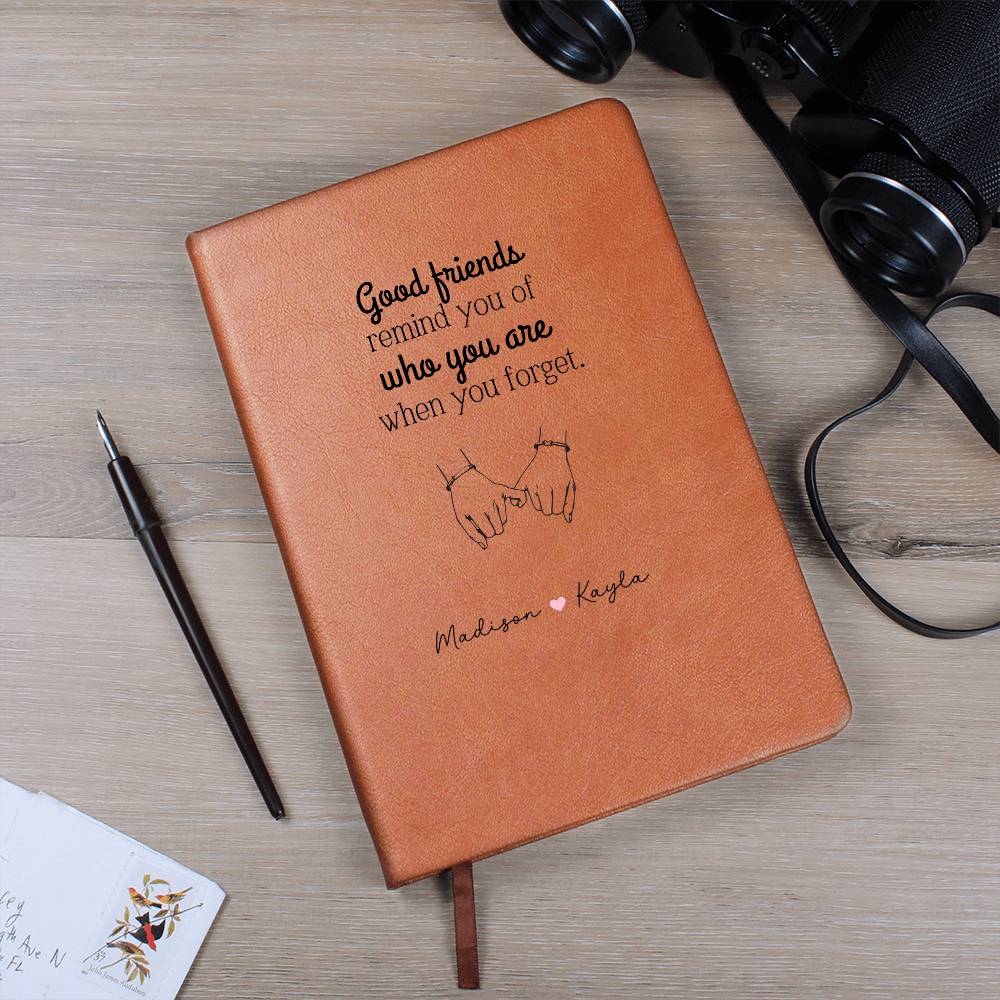 Good friends
remind you of
who you are
when you forget.
Madison Kayla
Ave N
FL
37
John James Audubon